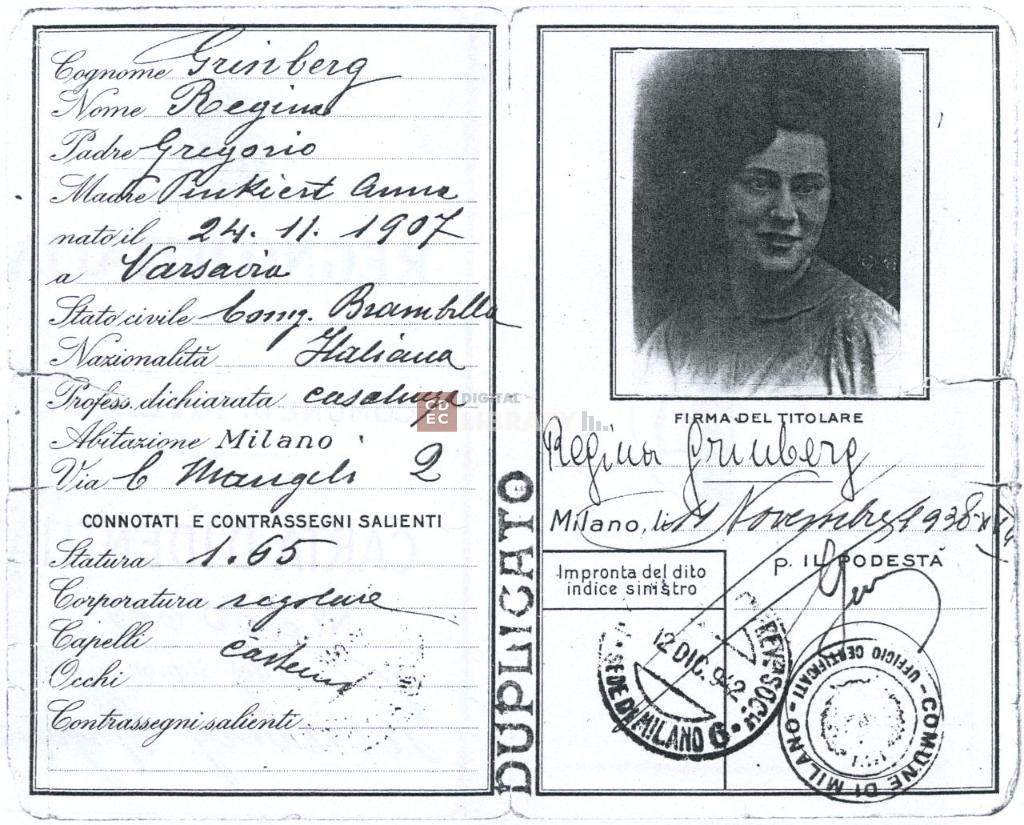 Cognome Grinberg
Nome Regina
Padre Gregorio
Madre Pinkiert Anna
nato il 24. 11. 1907
a Varsavia
Stato civile Coniug. Brambilla
Nazionalità Italiana
Profess. dichiarata casalinga
Abitazione Milano
Via C Mangili 2
CONNOTATI E CONTRASSEGNI SALIENTI
Statura 1.65
Corporatura regolare
Capelli castani
Occhi
Contrassegni salienti
DUPLICATO
CDEC DIGITAL LIBRARY
FIRMA DEL TITOLARE
Regina Grinberg
Milano, li 11 Novembre 1938
p. IL PODESTÀ
Impronta del dito
indice sinistro
12 DIC. 942
SEDE DI MILANO 6
COMUNE DI MILANO - UFFICIO CERTIFICATI